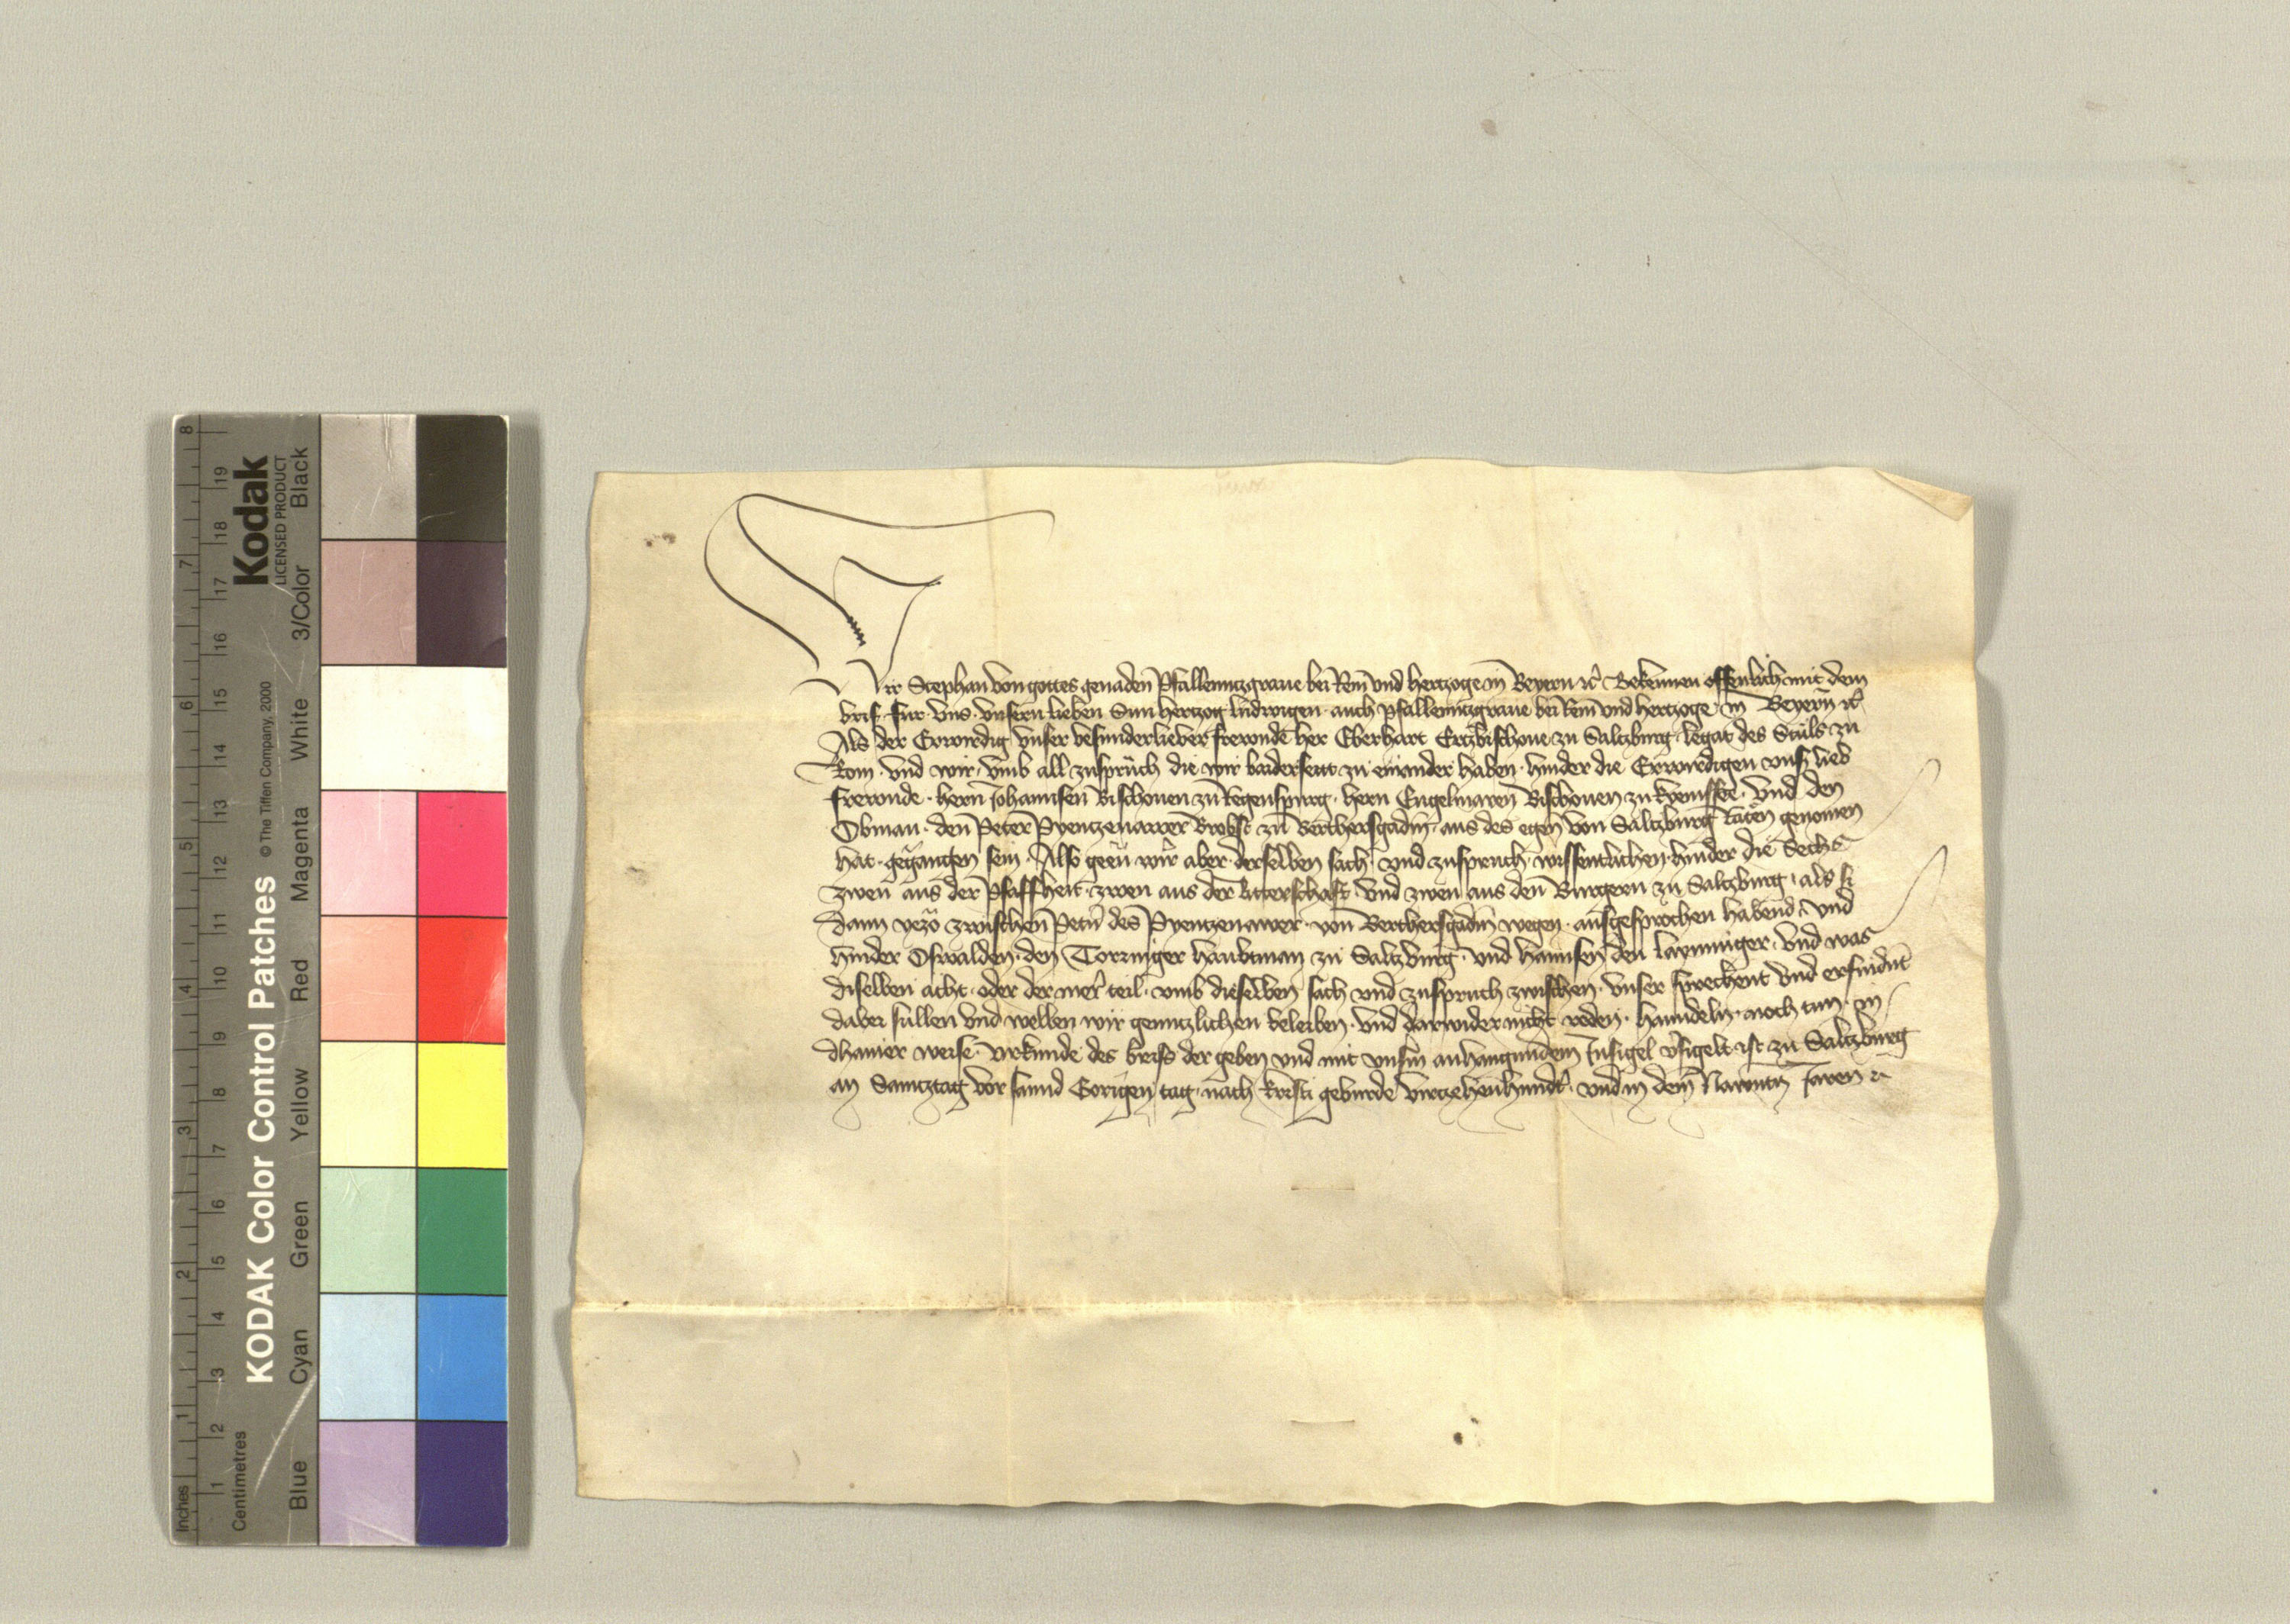 Wir Stephan von gottes genaden Pfallenntzgraue bei Rein vnd hertzoge in Beyern ꝛc Bekennen offenlich mit dem
brif fur vns vnsern lieben Sun hertzog ludwigen auch pfallenntzgraue bei Rein vnd hertzoge in Beyern ꝛc
Als der Erwirdig vnser besunderlieber frewnde her Eberhart Ertzbischoue zu Saltzburg legat des Stuls zu
Rom vnd wir vmb all zuspruch die wir baiderseitt zu einander haben hinder die Erwirdigen vnsr lieb
frewnde hern Johannsen Bischouen zu Regenspurg hern Engelmaren Bischouen zu kyemssee vnd den
Obman den Peter Pyentzenawer Brobst zu Berthersgadm aus des egen von Saltzburg Räten genomen
hat gegangen sein Also geen wir aber derselben sach vnd zuspruch wissentlichen hinder die Sechs
zwen aus der Pfaffheit zwen aus der Ritterschaft vnd zwen aus den Burgern zu Saltzburg als si
dann yezo zwischen Petn des Pyentzenawer von Berthersgadm wegen ausgesprochen habend vnd
hinder Oswalden den Torringer haubtman zu Saltzburg vnd hannsen den layminger vnd was
diselben acht oder der mer teil vmb dieselben sach vnd zuspruch zwischen vnser sprechent vnd erfindnt
dabei sullen vnd wellen wir genntzlichen beleiben vnd darwider nicht reden hanndeln noch tun in
dhainer weise vrkunde des briefs der geben vnd mit vnserm anhanngundem Insigel vsigelt ist zu Saltzburg
an Samtztag vor sannd Gorigen tag nach kristi geburde virtzehenhundt vnd in dem Newntn Jaren ꝛc
Kodak
LICENSED PRODUCT
KODAK Color Control Patches
© The Tiffen Company, 2000
Blue Cyan Green Yellow Red Magenta White 3/Color Black
Inches 1 2 3 4 5 6 7 8
Centimetres 1 2 3 4 5 6 7 8 9 10 11 12 13 14 15 16 17 18 19